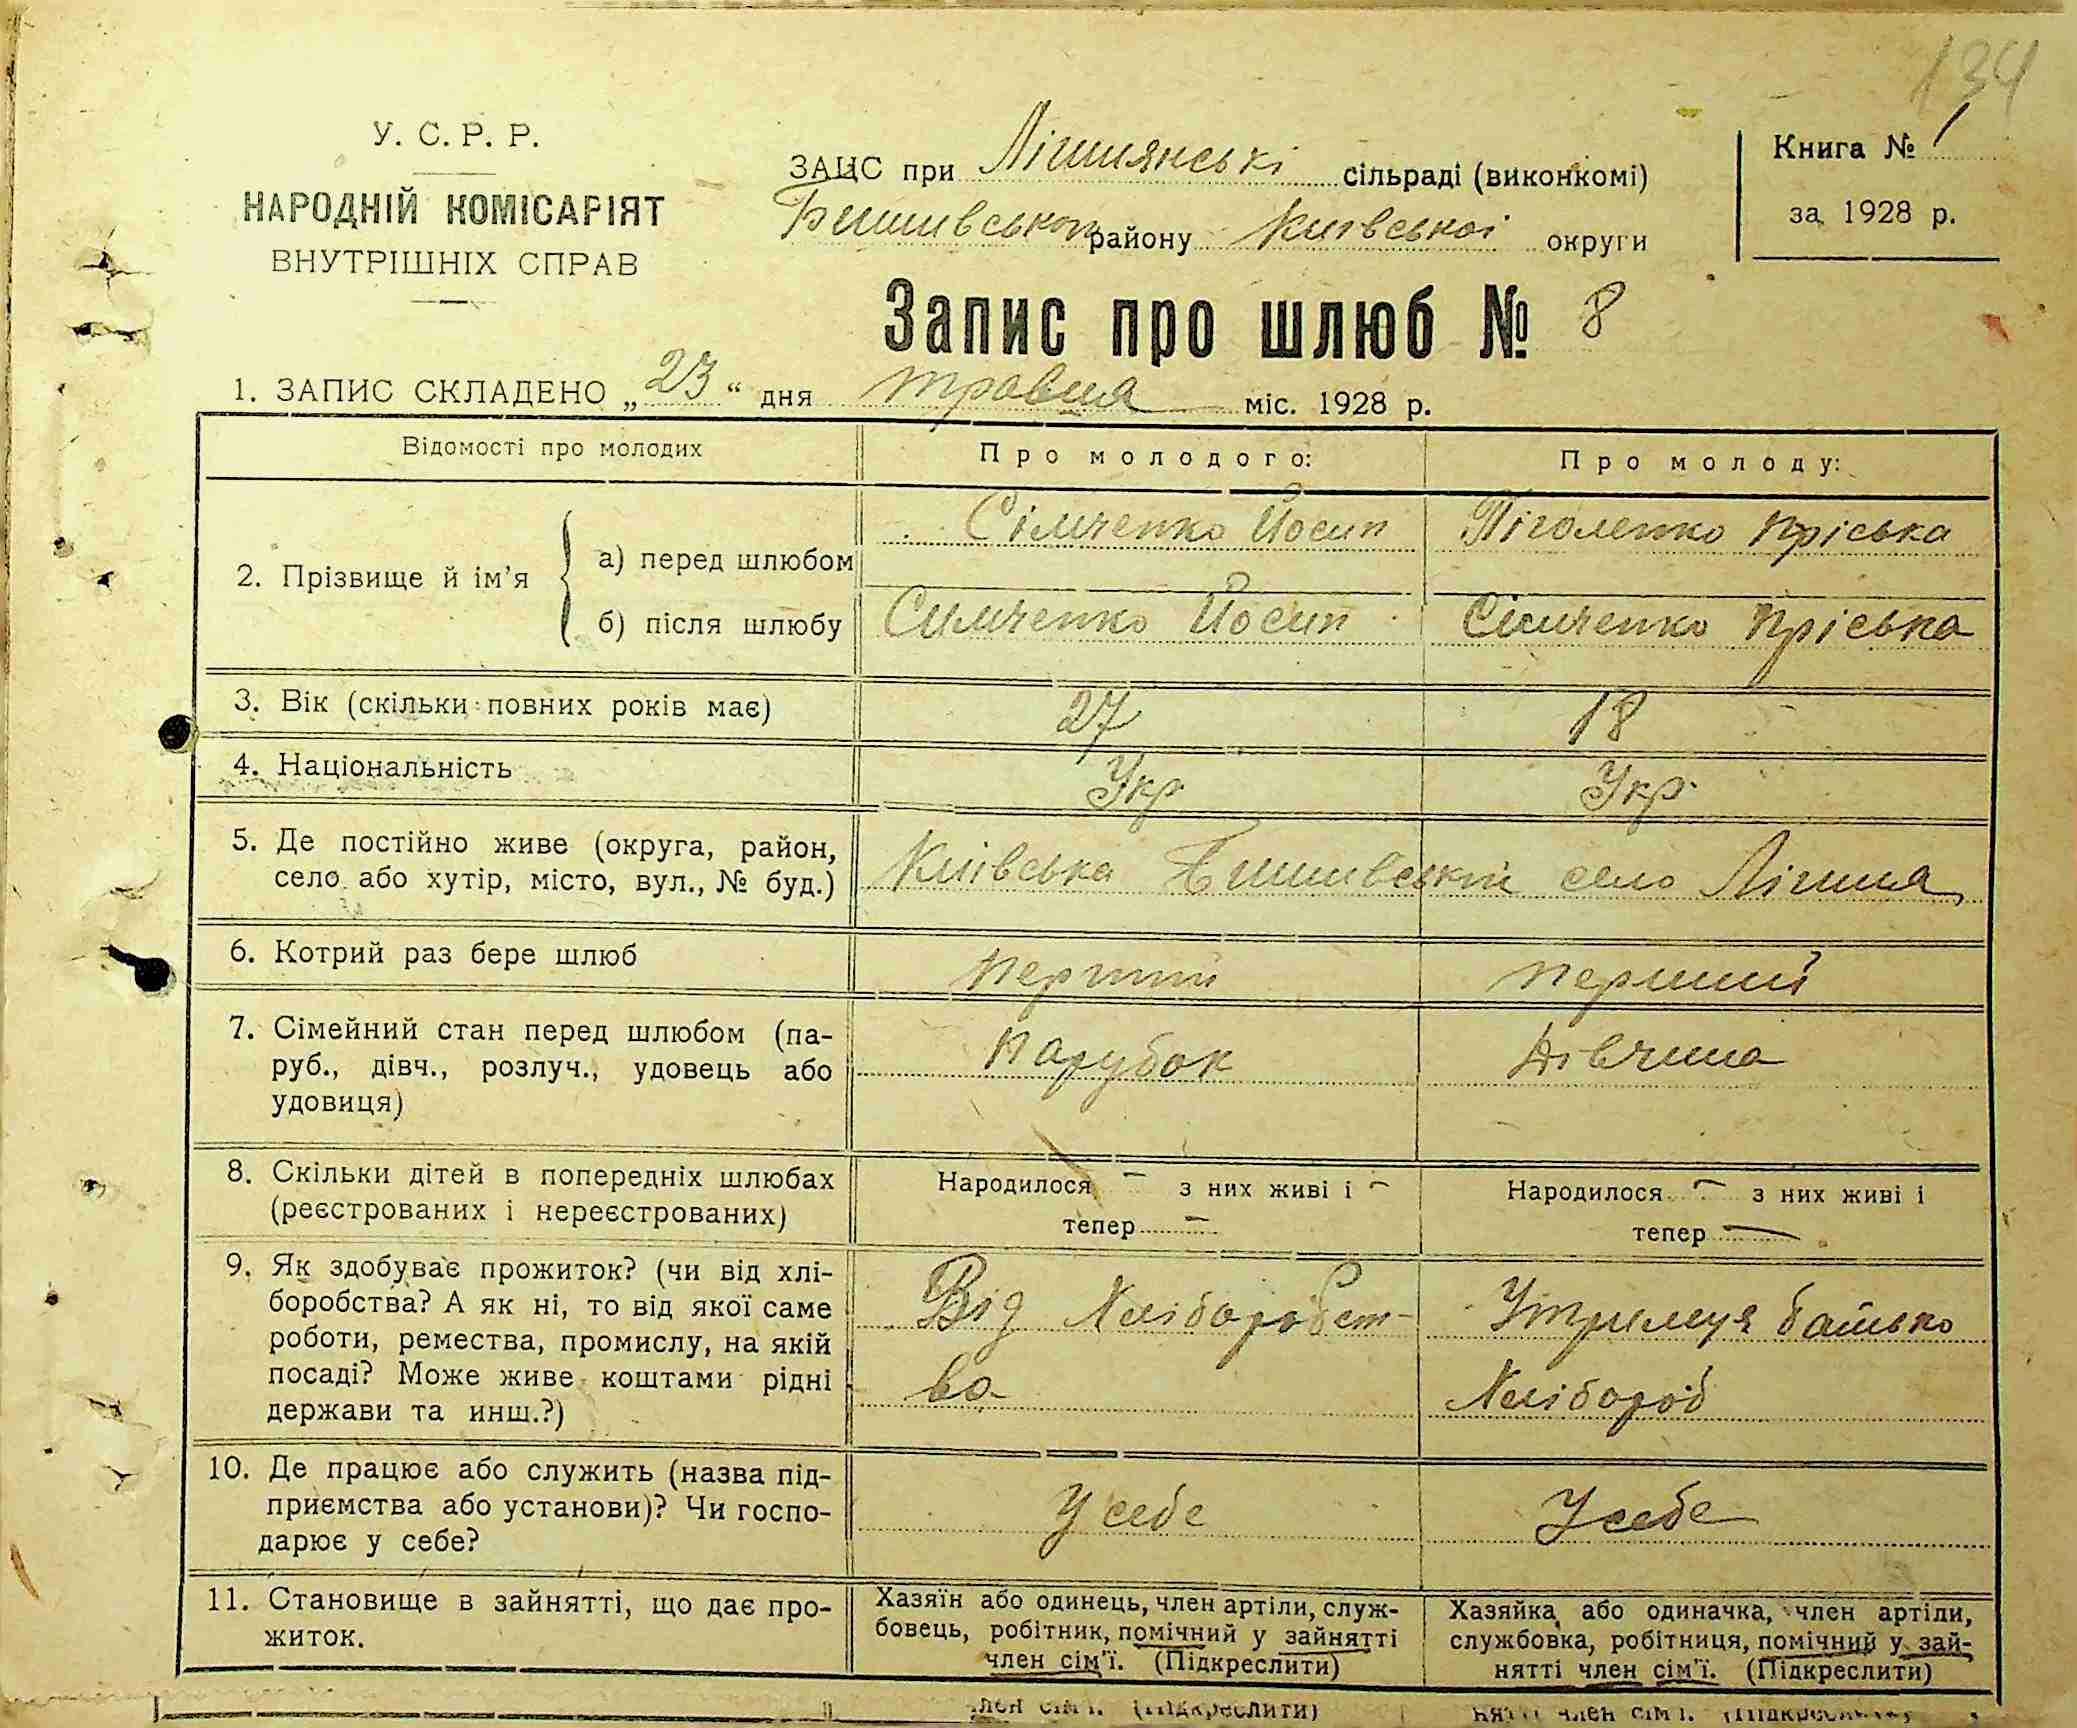 134
У. С. Р. Р.
НАРОДНІЙ КОМІСАРІЯТ
ВНУТРІШНІХ СПРАВ
ЗАЦС при Лішнянські сільраді (виконкомі)
Бишивського району Київської округи
Книга № 1
за 1928 р.
Запис про шлюб № 8
1. ЗАПИС СКЛАДЕНО „23“ дня травня міс. 1928 р.
Відомості про молодих
Про молодого:
Про молоду:
2. Прізвище й ім’я
а) перед шлюбом
Сімченко Йосип
Піголенко Пріська
б) після шлюбу
Симченко Йосип
Сімченко Пріська
3. Вік (скільки повних років має)
27
18
4. Національність
Укр
Укр.
5. Де постійно живе (округа, район,
село або хутір, місто, вул., № буд.)
Київська Бишивській село Лішня
6. Котрий раз бере шлюб
перший
перший
7. Сімейний стан перед шлюбом (па-
руб., дівч., розлуч., удовець або
удовиця)
парубок
Дівчина
8. Скільки дітей в попередніх шлюбах
(реєстрованих і нереєстрованих)
Народилося — з них живі і —
тепер —
Народилося — з них живі і
тепер —
9. Як здобуває прожиток? (чи від хлі-
боробства? А як ні, то від якої саме
роботи, ремества, промислу, на якій
посаді? Може живе коштами рідні
держави та инш.?)
Від Хліборобст-
ва
Утримуя батько
Хлібороб
10. Де працює або служить (назва під-
приємства або установи)? Чи госпо-
дарює у себе?
У себе
У себе
11. Становище в зайнятті, що дає про-
житок.
Хазяїн або одинець, член артіли, служ-
бовець, робітник, помічний у зайнятті
член сім’ї. (Підкреслити)
Хазяйка або одиначка, член артіли,
службовка, робітниця, помічний у зай-
нятті член сім’ї. (Підкреслити)
член сім’ї. (Підкреслити)
нятті член сім’ї. (Підкреслити)